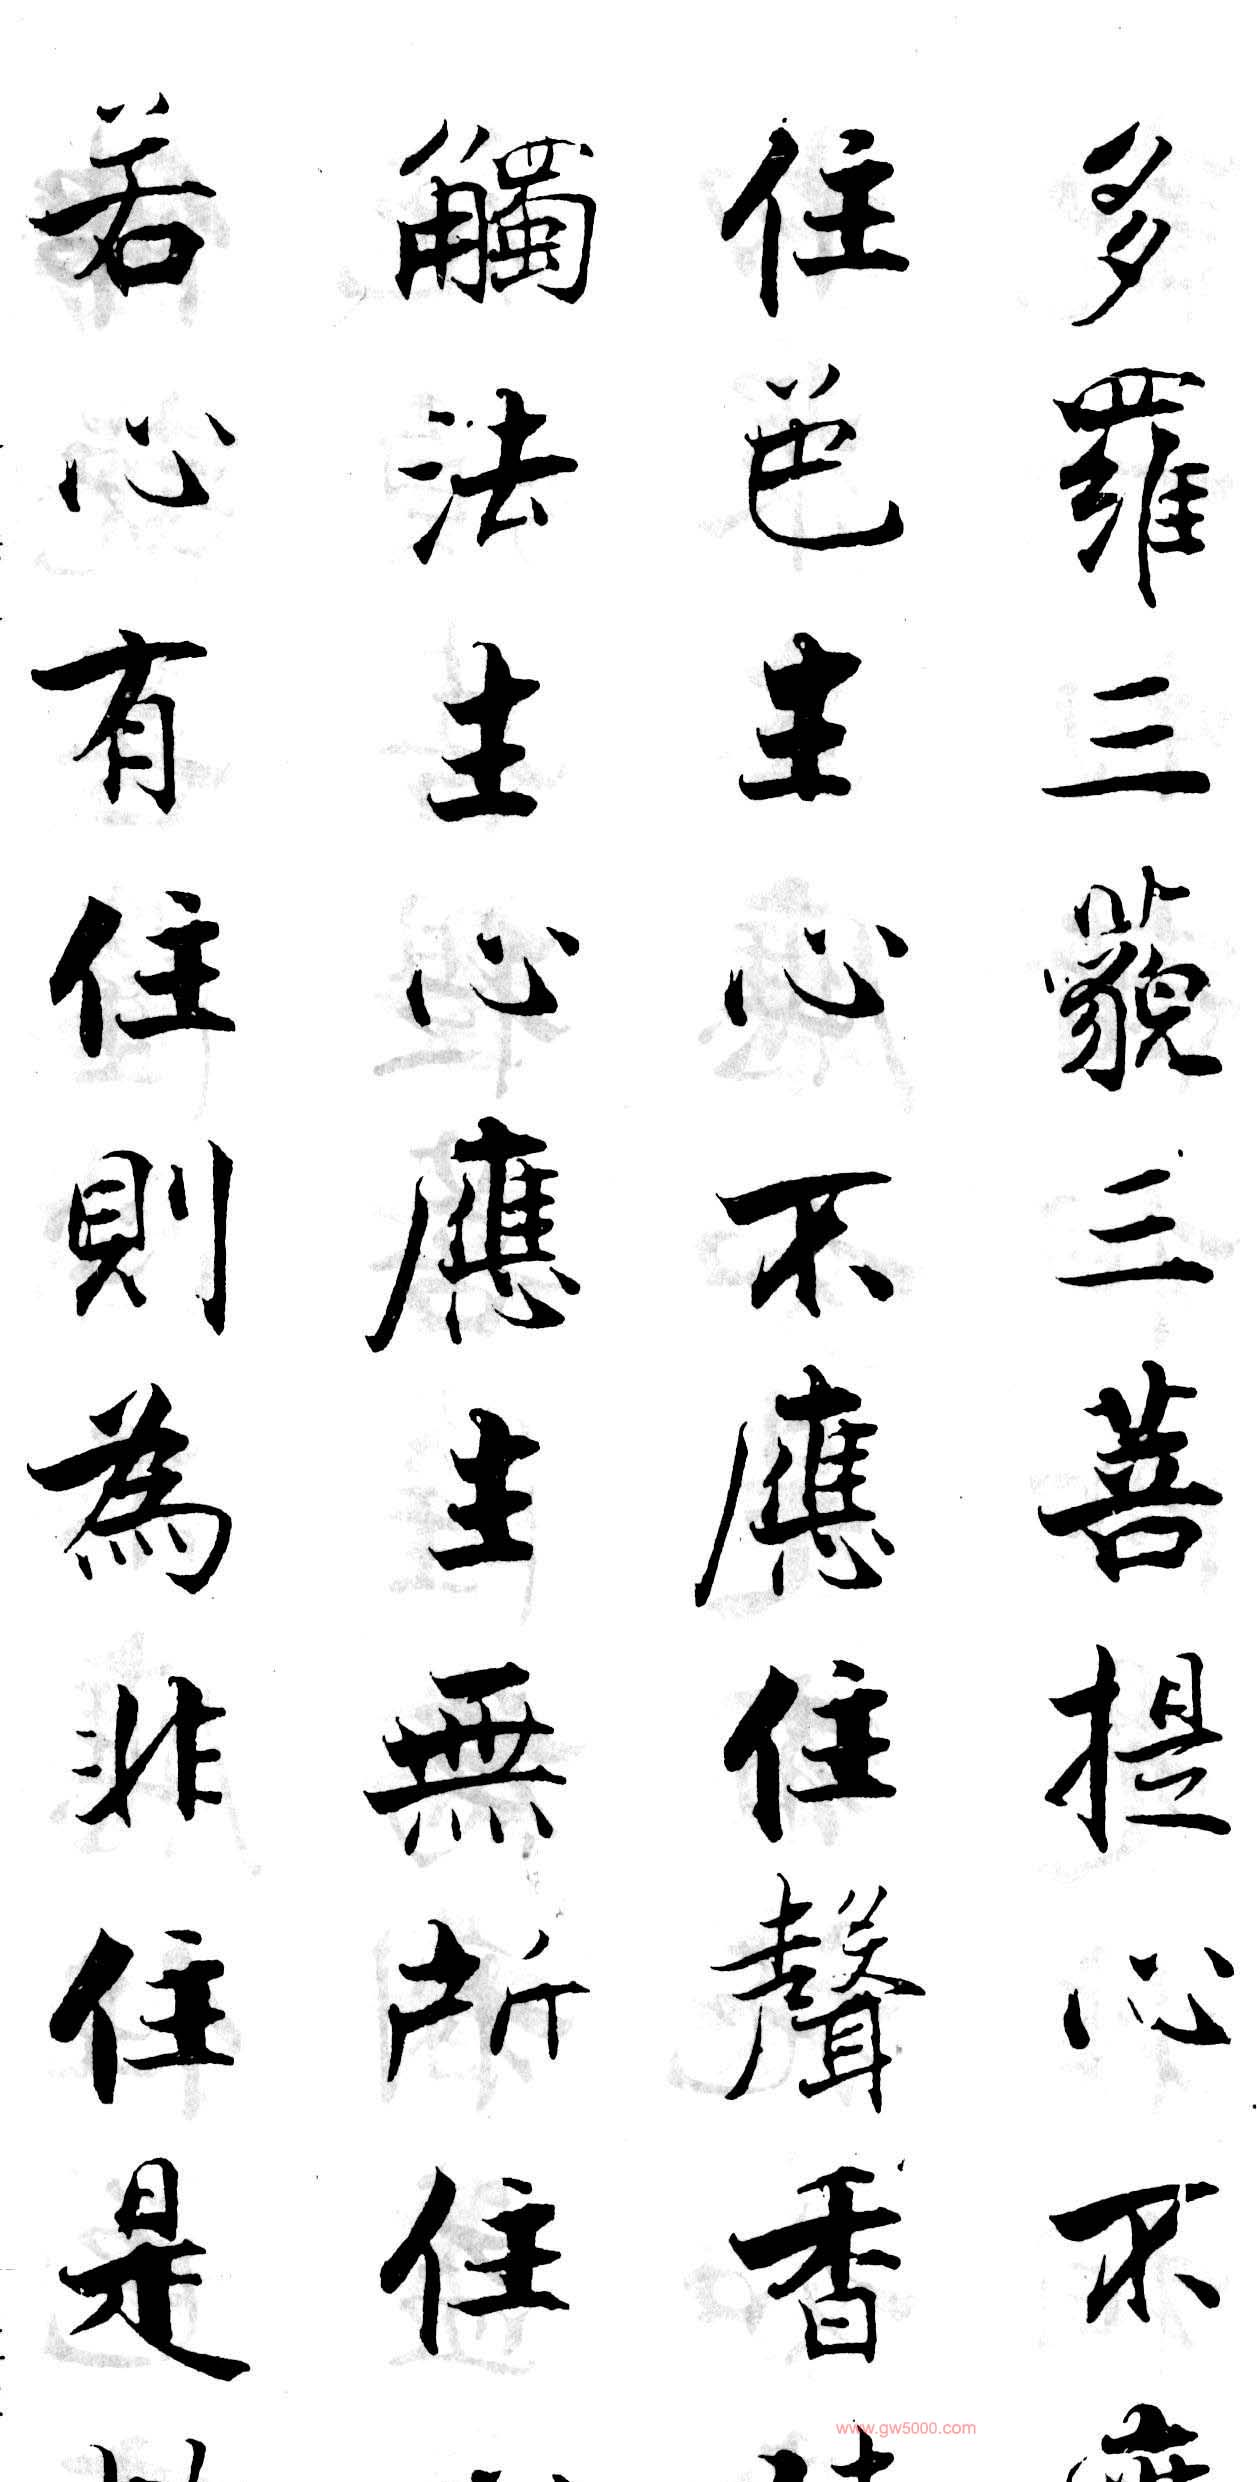 多羅三藐三菩提心不
住色生心不應住聲香
觸法生心應生無所住
若心有住則為非住是
www.gw5000.com